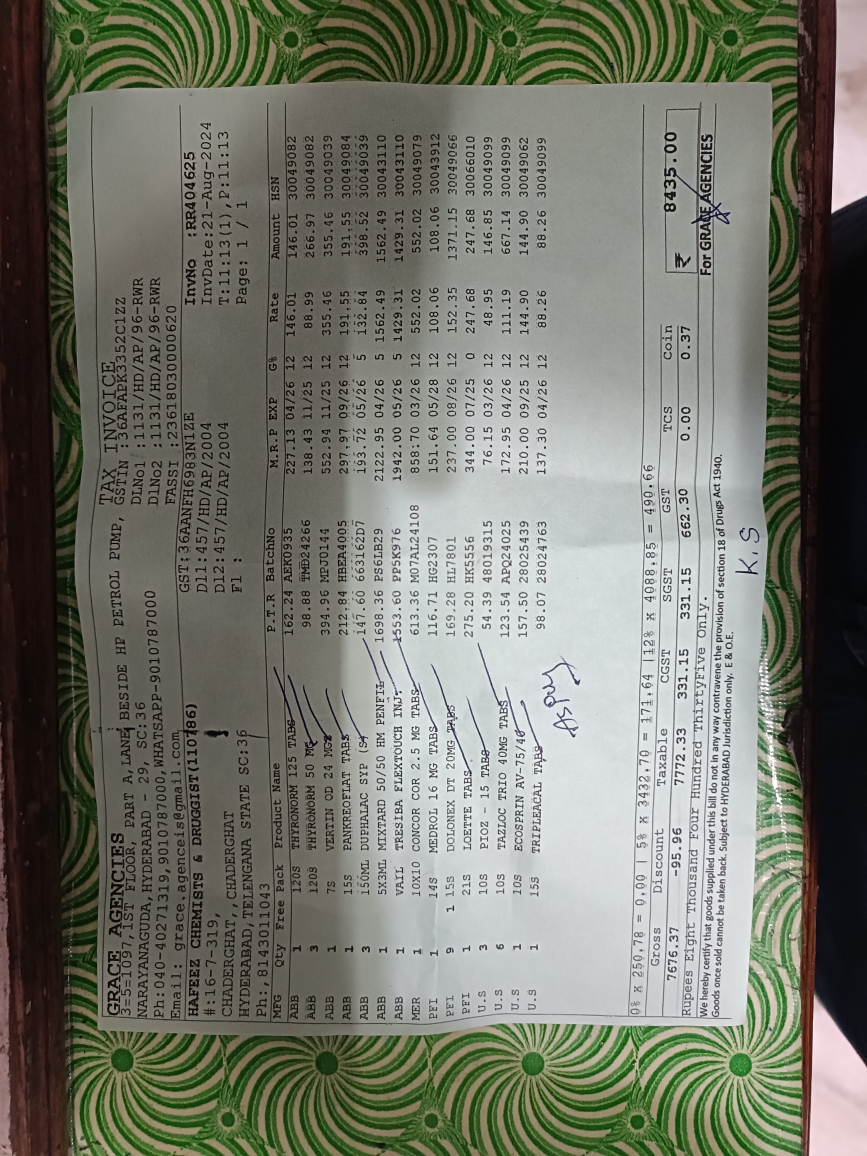 TAX INVOICE
GRACE AGENCIES
3=5=1097,1ST FLOOR, PART A,LANE BESIDE HP PETROL PUMP,
GSTIN :36AFAPK3352C1ZZ
NARAYANAGUDA,HYDERABAD - 29, SC:36
DLNo1 :1131/HD/AP/96-RWR
Ph:040-40271319,9010787000,WHATSAPP-9010787000
DlNo2 :1131/HD/AP/96-RWR
Email: grace.agenceis@gmail.com
FASSI :23618030000620
HAFEEZ CHEMISTS & DRUGGIST(110786)
GST:36AANFH6983N1ZE
InvNo :RR404625
#:16-7-319,
Dl1:457/HD/AP/2004
InvDate:21-Aug-2024
CHADERGHAT,,CHADERGHAT
Dl2:457/HD/AP/2004
T:11:13(1),P:11:13
HYDERABAD,TELENGANA STATE SC:36
Fl :
Page: 1 / 1
Ph:,8143011043
MFG Qty Free Pack Product Name P.T.R BatchNo M.R.P EXP G% Rate Amount HSN
ABB 1 120S THYRONORM 125 TABS 162.24 AEK0935 227.13 04/26 12 146.01 146.01 30049082
ABB 3 120S THYRONORM 50 MG 98.88 TMD24266 138.43 11/25 12 88.99 266.97 30049082
ABB 1 7S VERTIN OD 24 MG 394.96 MPJ0144 552.94 11/25 12 355.46 355.46 30049039
ABB 1 15S PANKREOFLAT TABS 212.84 HBEA4005 297.97 09/26 12 191.55 191.55 30049084
ABB 3 150ML DUPHALAC SYP (S) 147.60 663162D7 193.72 05/26 5 132.84 398.52 30049039
ABB 1 5X3ML MIXTARD 50/50 HM PENFIL 1698.36 PS6LB29 2122.95 04/26 5 1562.49 1562.49 30043110
ABB 1 VAIL TRESIBA FLEXTOUCH INJ. 1553.60 PP5K976 1942.00 05/26 5 1429.31 1429.31 30043110
MER 1 10X10 CONCOR COR 2.5 MG TABS 613.36 M07AL24108 858:70 03/26 12 552.02 552.02 30049079
PFI 1 14S MEDROL 16 MG TABS 116.71 HG2307 151.64 05/28 12 108.06 108.06 30043912
PFI 9 1 15S DOLONEX DT 20MG TABS 169.28 HL7801 237.00 08/26 12 152.35 1371.15 30049066
PFI 1 21S LOETTE TABS 275.20 HK5556 344.00 07/25 0 247.68 247.68 30066010
U.S 3 10S PIOZ - 15 TABS 54.39 48019315 76.15 03/26 12 48.95 146.85 30049099
U.S 6 10S TAZLOC TRIO 40MG TABS 123.54 APQ24025 172.95 04/26 12 111.19 667.14 30049099
U.S 1 10S ECOSPRIN AV-75/40 157.50 28025439 210.00 09/25 12 144.90 144.90 30049062
U.S 1 15S TRIPLEACAL TABS 98.07 28024763 137.30 04/26 12 88.26 88.26 30049099
0% X 250.78 = 0.00 | 5% X 3432.70 = 171.64 |12% X 4088.85 = 490.66
Gross Discount Taxable CGST SGST GST TCS Coin
7676.37 -95.96 7772.33 331.15 331.15 662.30 0.00 0.37
₹ 8435.00
Rupees Eight Thousand Four Hundred ThirtyFive Only.
For GRACE AGENCIES
We hereby certify that goods supplied under this bill do not in any way contravene the provision of section 18 of Drugs Act 1940.
Goods once sold cannot be taken back. Subject to HYDERABAD Jurisdiction only. E & O.E.
K.S